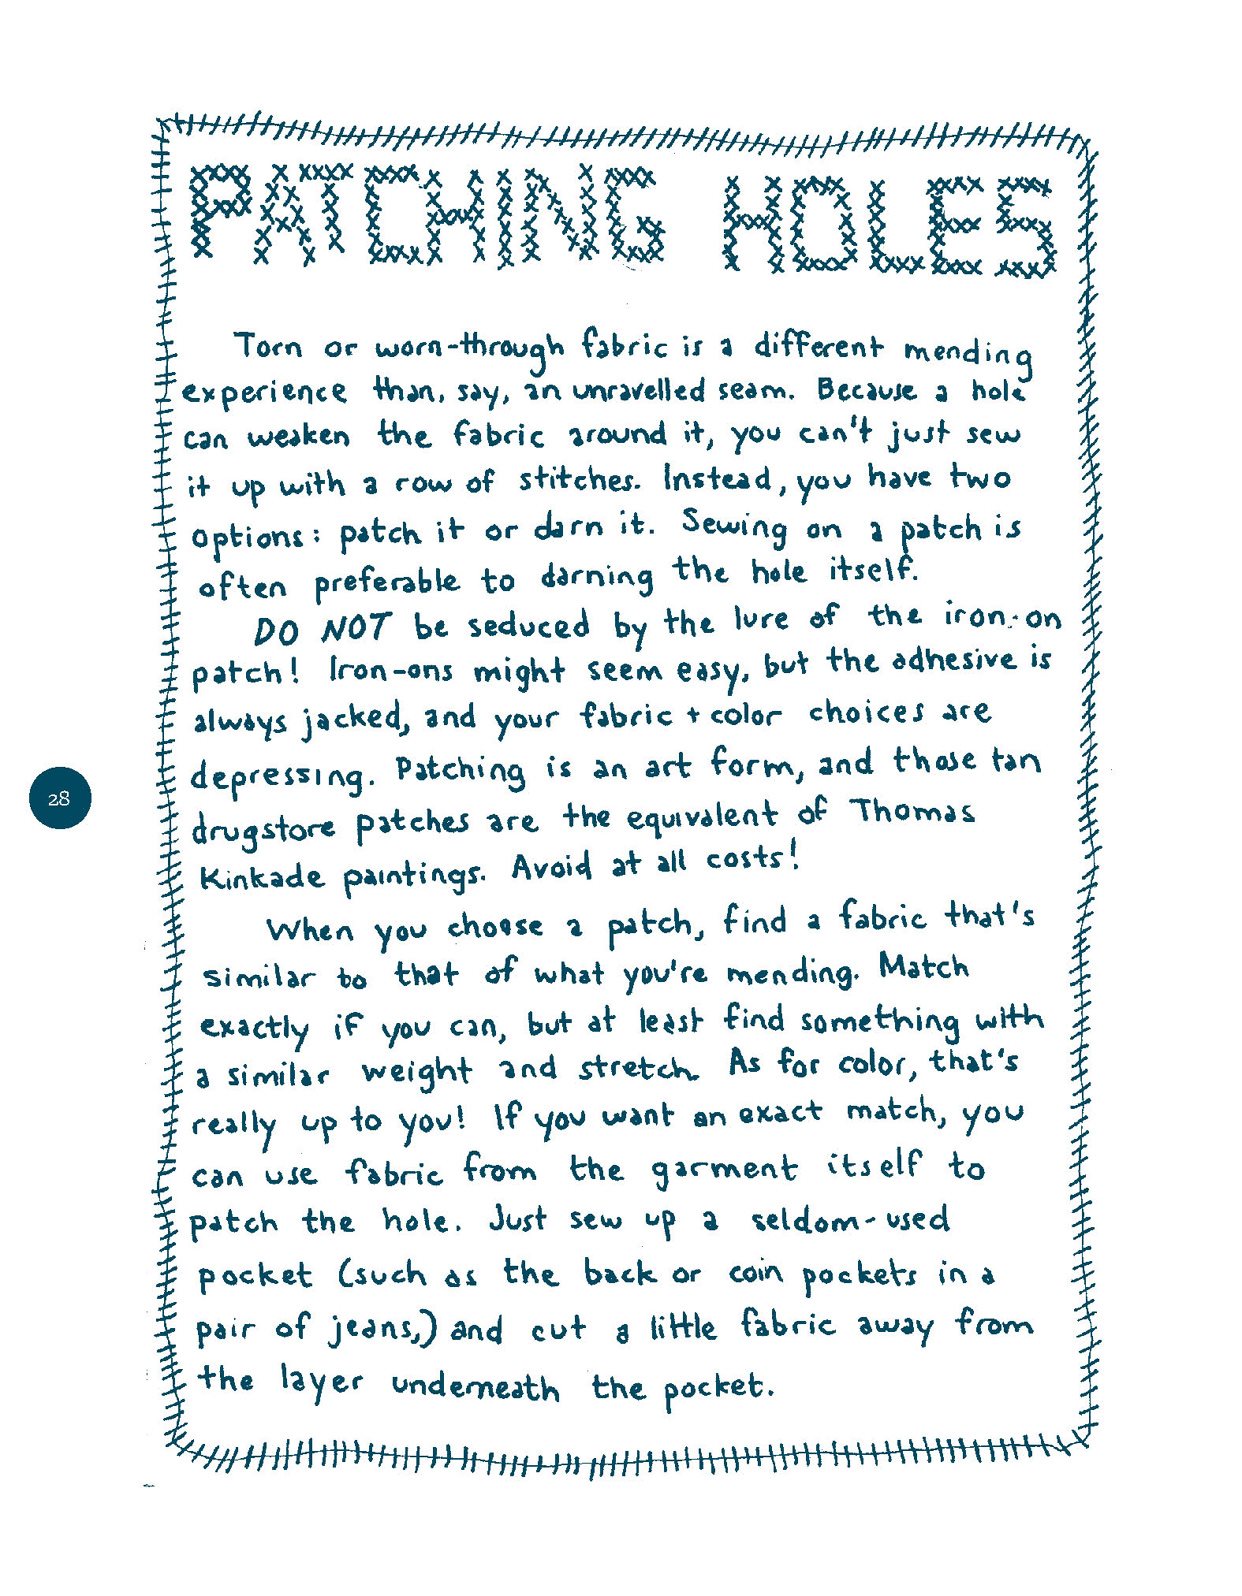 PATCHING HOLES
Torn or worn-through fabric is a different mending
experience than, say, an unravelled seam. Because a hole
can weaken the fabric around it, you can't just sew
it up with a row of stitches. Instead, you have two
options: patch it or darn it. Sewing on a patch is
often preferable to darning the hole itself.
DO NOT be seduced by the lure of the iron-on
patch! Iron-ons might seem easy, but the adhesive is
always jacked, and your fabric + color choices are
depressing. Patching is an art form, and those tan
drugstore patches are the equivalent of Thomas
Kinkade paintings. Avoid at all costs!
28
When you choose a patch, find a fabric that's
similar to that of what you're mending. Match
exactly if you can, but at least find something with
a similar weight and stretch. As for color, that's
really up to you! If you want an exact match, you
can use fabric from the garment itself to
patch the hole. Just sew up a seldom-used
pocket (such as the back or coin pockets in a
pair of jeans,) and cut a little fabric away from
the layer underneath the pocket.